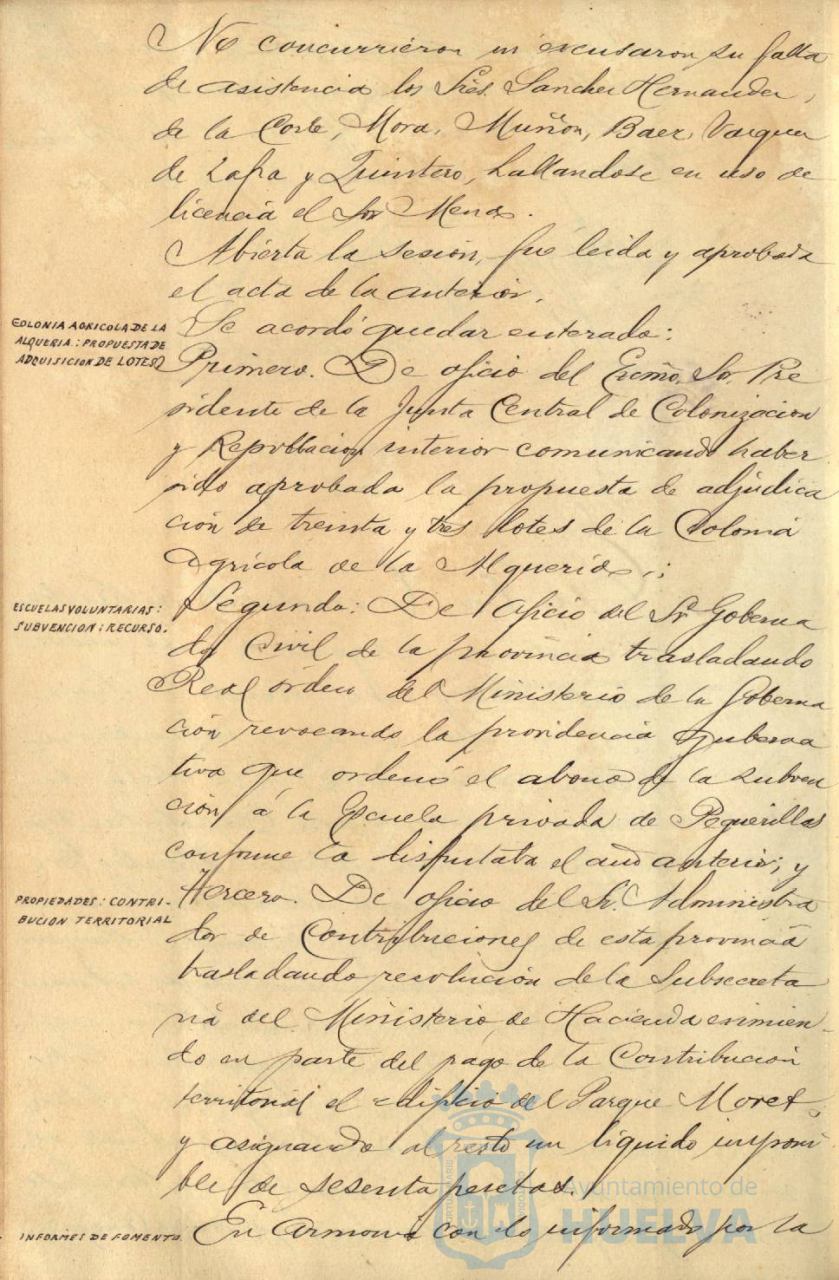 No concurrieron ni excusaron su falta
de asistencia los Sres. Sanchez Hernandez,
de la Corte, Mora, Muñoz, Baez, Vazquez
de Zafra y Quintero, hallandose en uso de
licencia el Sor Mena.
Abierta la sesión, fué leida y aprobada
el acta de la anterior.
COLONIA AGRICOLA DE LA
ALQUERIA: PROPUESTA DE
ADQUISICION DE LOTES
Se acordó quedar enterado:
Primero. De oficio del Excmo. Sr. Pre
sidente de la Junta Central de Colonizacion
y Repoblacion interior comunicando haber
sido aprobada la propuesta de adjudica
ción de treinta y tres lotes de la Colonia
Agrícola de la Alqueria;
ESCUELAS VOLUNTARIAS:
SUBVENCION: RECURSO.
Segundo: De oficio del Sr Goberna
dor Civil de la provincia trasladando
Real órden del Ministerio de la Goberna
ción revocando la providencia guberna
tiva que ordenó el abono de la subven
ción á la Escuela privada de Peguerillas
conforme la disfrutaba el año anterior; y
PROPIEDADES: CONTRI-
BUCION TERRITORIAL
Tercero. De oficio del Sr. Administra
dor de Contribuciones de esta provincia
trasladando resolución de la Subsecreta
ria del Ministerio de Hacienda eximien-
do en parte del pago de la Contribución
territorial el edificio del Parque Moret,
y asignando al resto un líquido imponi
ble de sesenta pesetas.
INFORMES DE FOMENTO.
En armonia con lo informado por la
Ayuntamiento de
HUELVA